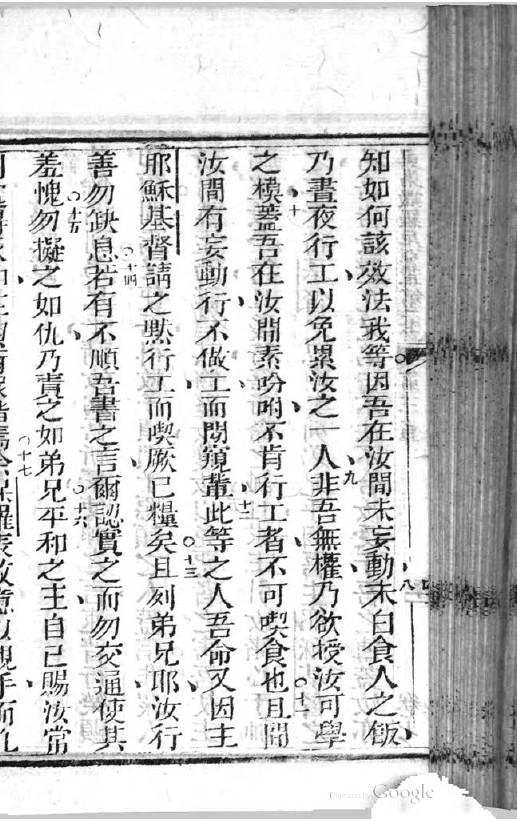 知如何該效法我等因吾在汝間未妄動未白食人之飯
八
乃晝夜行工以免累汝之一人非吾無權乃欲授汝可學
九
之模蓋吾在汝間素吩咐不肯行工者不可喫食也且聞
十 十一
汝間有妄動行不做工而閒窺輩此等之人吾命又因主
十二
耶穌基督請之默行工而喫厥己糧矣且列弟兄耶汝行
十三
善勿缺息若有不順吾書之言爾認實之而勿交通使其
十四
羞愧勿擬之如仇乃責之如弟兄平和之主自己賜汝常
十五 十六
十七
Digitized by Google